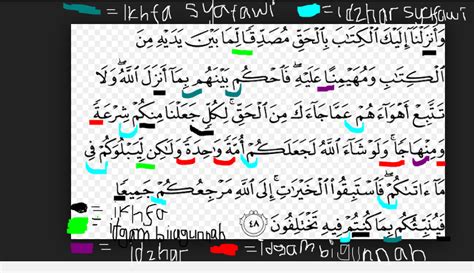 =Ikhfa syafawi =idzhar syafawi
وَأَنزَلْنَا إِلَيْكَ ٱلْكِتَٰبَ بِٱلْحَقِّ مُصَدِّقًا لِّمَا بَيْنَ يَدَيْهِ مِنَ
ٱلْكِتَٰبِ وَمُهَيْمِنًا عَلَيْهِ ۖ فَٱحْكُم بَيْنَهُم بِمَآ أَنزَلَ ٱللَّهُ ۖ وَلَا
تَتَّبِعْ أَهْوَآءَهُمْ عَمَّا جَآءَكَ مِنَ ٱلْحَقِّ ۚ لِكُلٍّ جَعَلْنَا مِنكُمْ شِرْعَةً
وَمِنْهَاجًا ۚ وَلَوْ شَآءَ ٱللَّهُ لَجَعَلَكُمْ أُمَّةً وَٰحِدَةً وَلَٰكِن لِّيَبْلُوَكُمْ فِى
مَآ ءَاتَىٰكُمْ ۖ فَٱسْتَبِقُوا۟ ٱلْخَيْرَٰتِ ۚ إِلَى ٱللَّهِ مَرْجِعُكُمْ جَمِيعًا
فَيُنَبِّئُكُم بِمَا كُنتُمْ فِيهِ تَخْتَلِفُونَ ٤٨
=Ikhfa
=idgam bilagunnah
=idzhar =idgam bigunnah